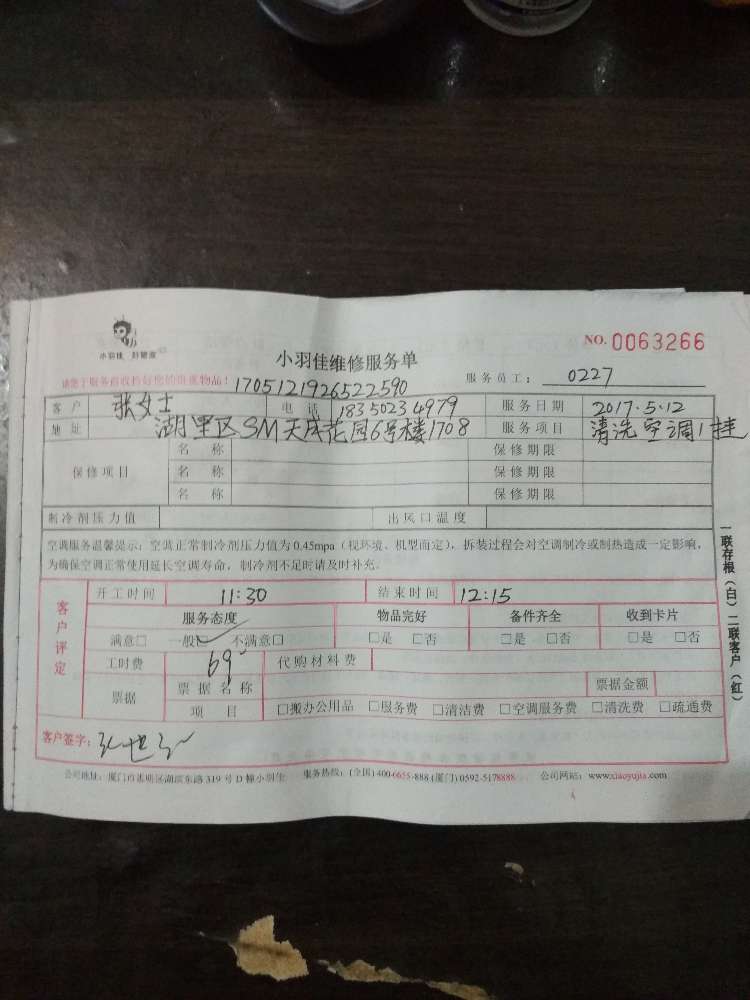 小羽佳 好管家
小羽佳维修服务单
NO. 0063266
请您于服务前收检好您的贵重物品!
1705121926522590
服务员工: 0227
客户 张女士 电话 18350234979 服务日期 2017.5.12
地址 湖里区SM天成花园6号楼1708 服务项目 清洗空调1挂
保修项目
名称 保修期限
名称 保修期限
名称 保修期限
制冷剂压力值 出风口温度
空调服务温馨提示: 空调正常制冷剂压力值为0.45mpa (视环境、机型而定), 拆装过程会对空调制冷或制热造成一定影响,
为确保空调正常使用延长空调寿命, 制冷剂不足时请及时补充。
客户评定
开工时间 11:30 结束时间 12:15
服务态度 物品完好 备件齐全 收到卡片
满意□ 一般□ 不满意□ □是 □否 □是 □否 □是 □否
工时费 69 代购材料费
票据 票据名称 票据金额
项目 □搬办公用品 □服务费 □清洁费 □空调服务费 □清洗费 □疏通费
客户签字:
公司地址: 厦门市思明区湖滨东路319号D幢小羽佳 服务热线: (全国) 400-6655-888 (厦门) 0592-5178888 公司网站: www.xiaoyujia.com
一联存根(白) 二联客户(红)